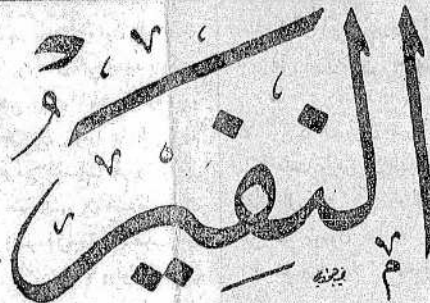 النفير